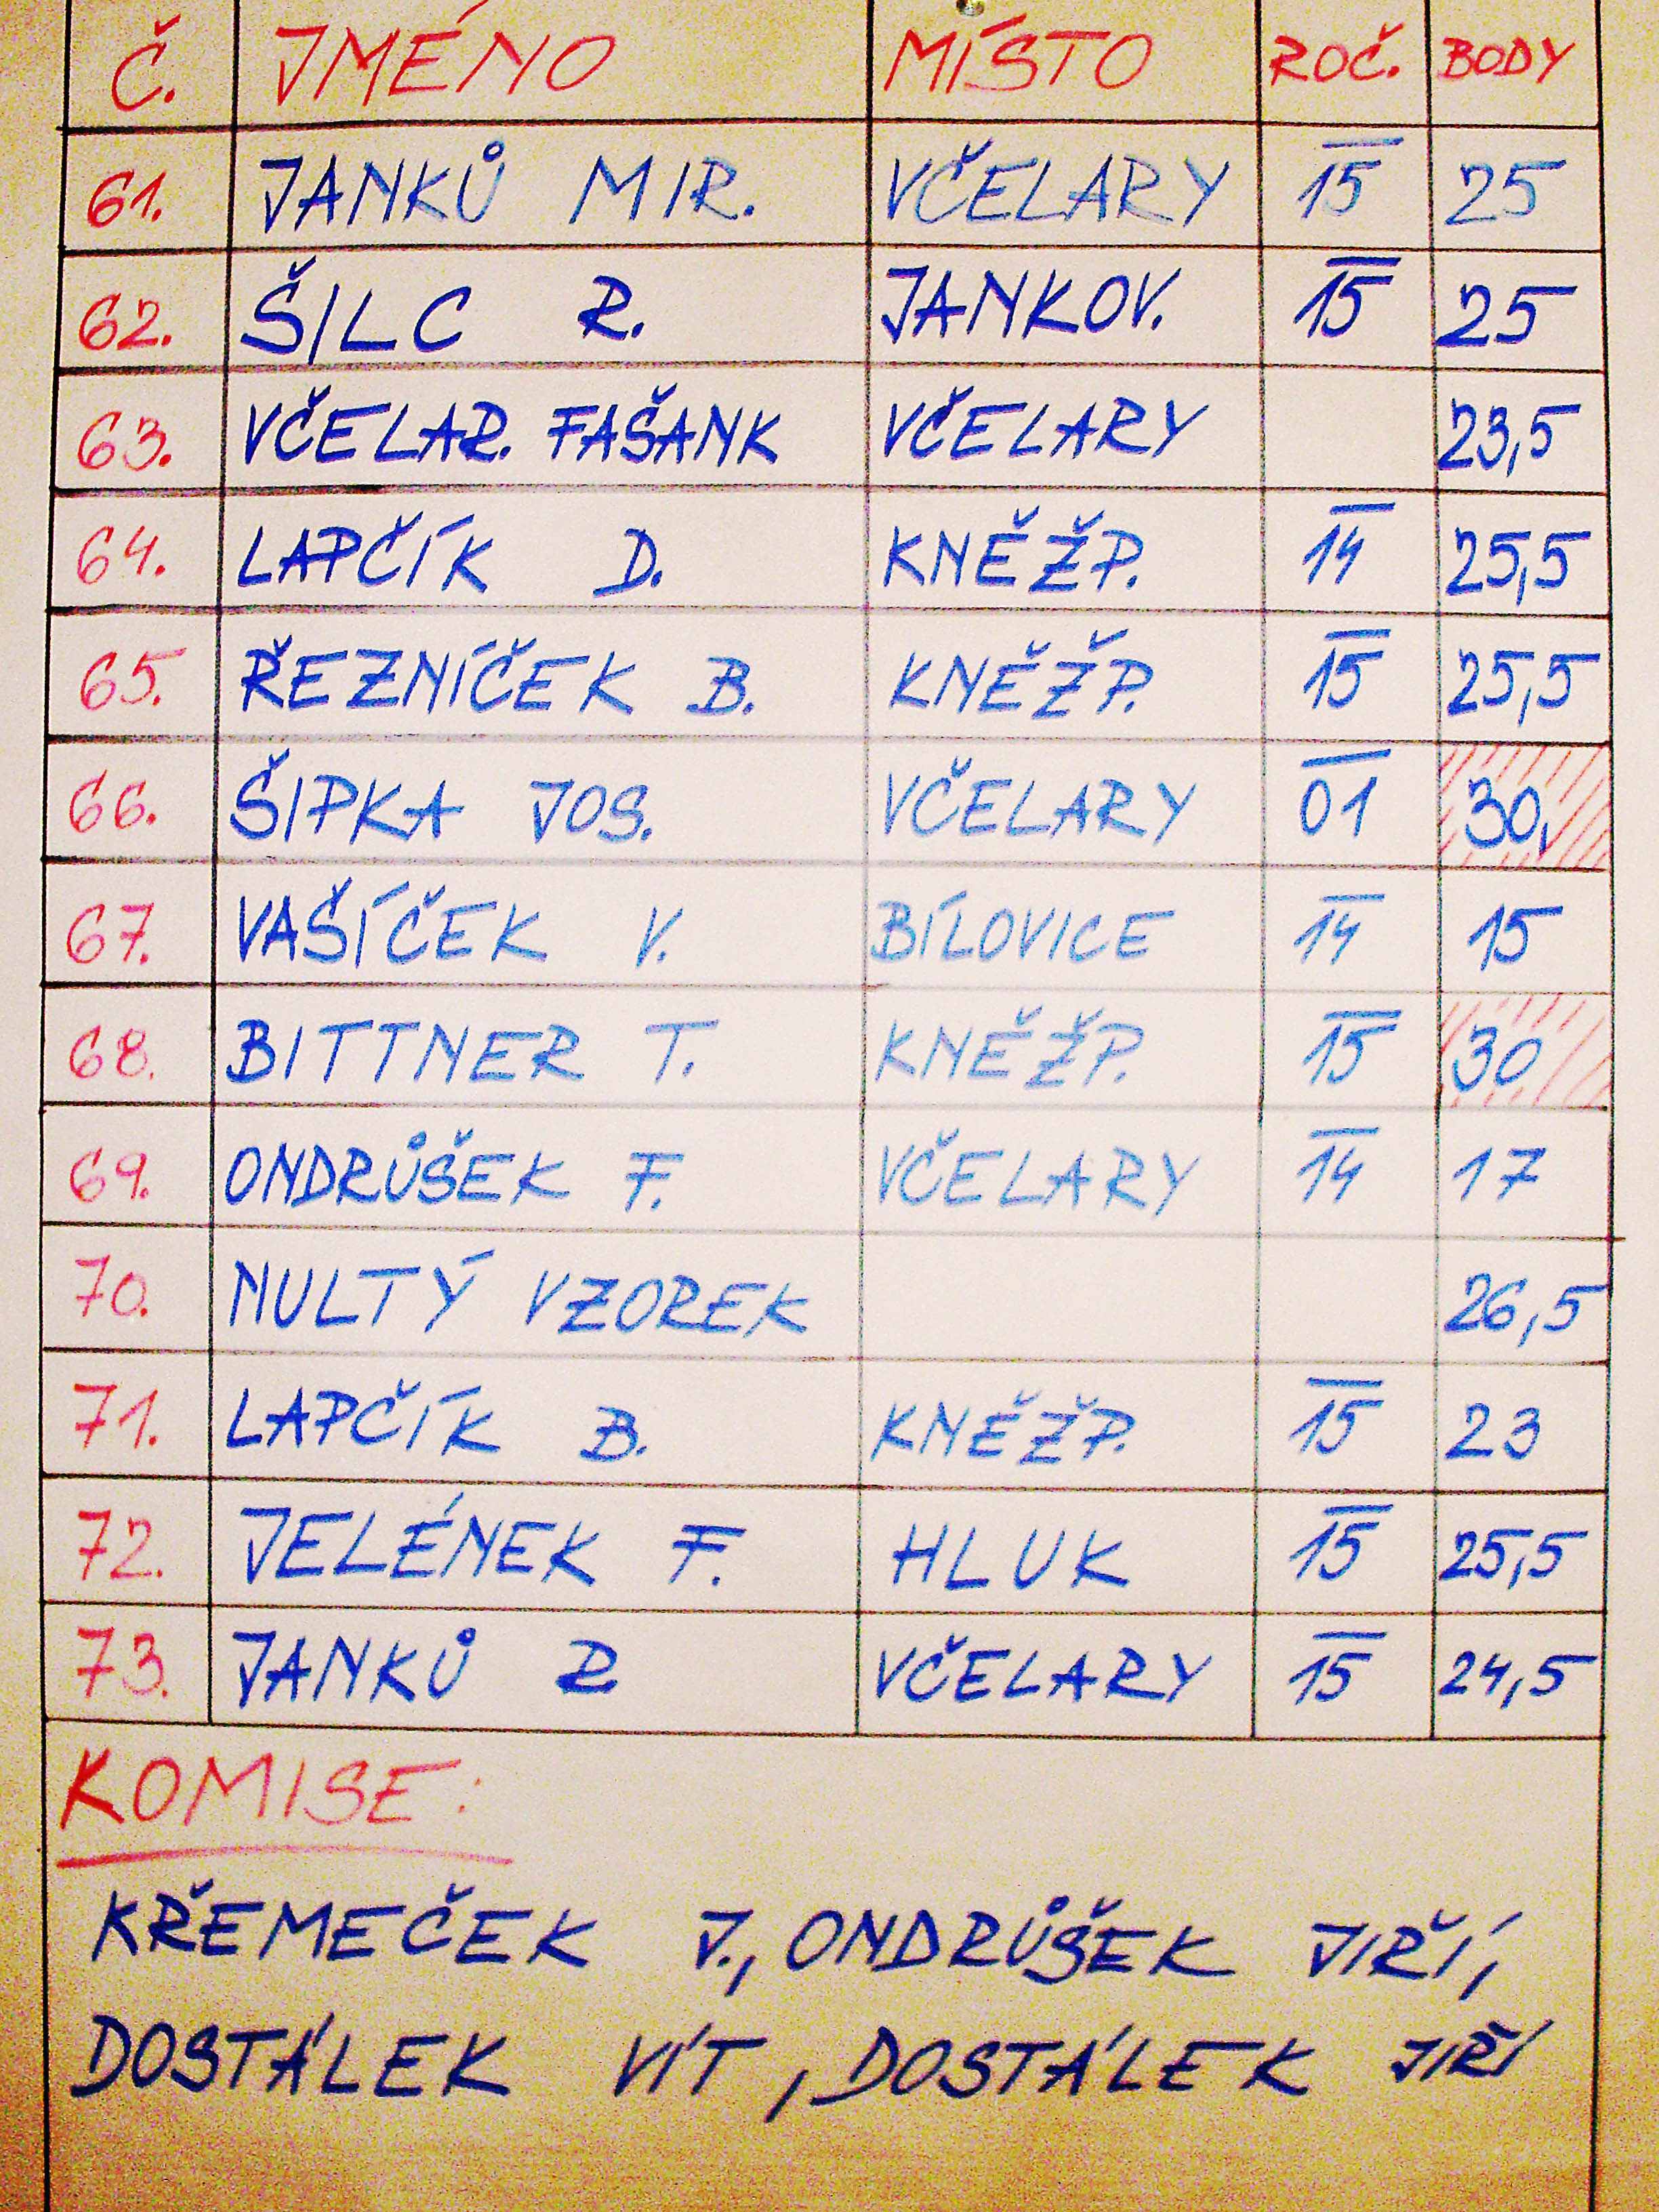 Č. JMÉNO MÍSTO ROČ. BODY
61. JANKŮ MIR. VČELARY 15 25
62. ŠILC R. JANKOV. 15 25
63. VČELAR. FAŠANK VČELARY 23,5
64. LAPČÍK D. KNĚŽP. 14 25,5
65. ŘEZNÍČEK B. KNĚŽP. 15 25,5
66. ŠIPKA JOS. VČELARY 01 30,
67. VAŠÍČEK V. BÍLOVICE 14 15
68. BITTNER T. KNĚŽP. 15 30
69. ONDRŮŠEK F. VČELARY 14 17
70. NULTÝ VZOREK 26,5
71. LAPČÍK B. KNĚŽP. 15 23
72. JELÉNEK F. HLUK 15 25,5
73. JANKŮ R VČELARY 15 24,5
KOMISE:
KŘEMEČEK J., ONDRŮŠEK JIŘÍ,
DOSTÁLEK VÍT, DOSTÁLEK JIŘÍ